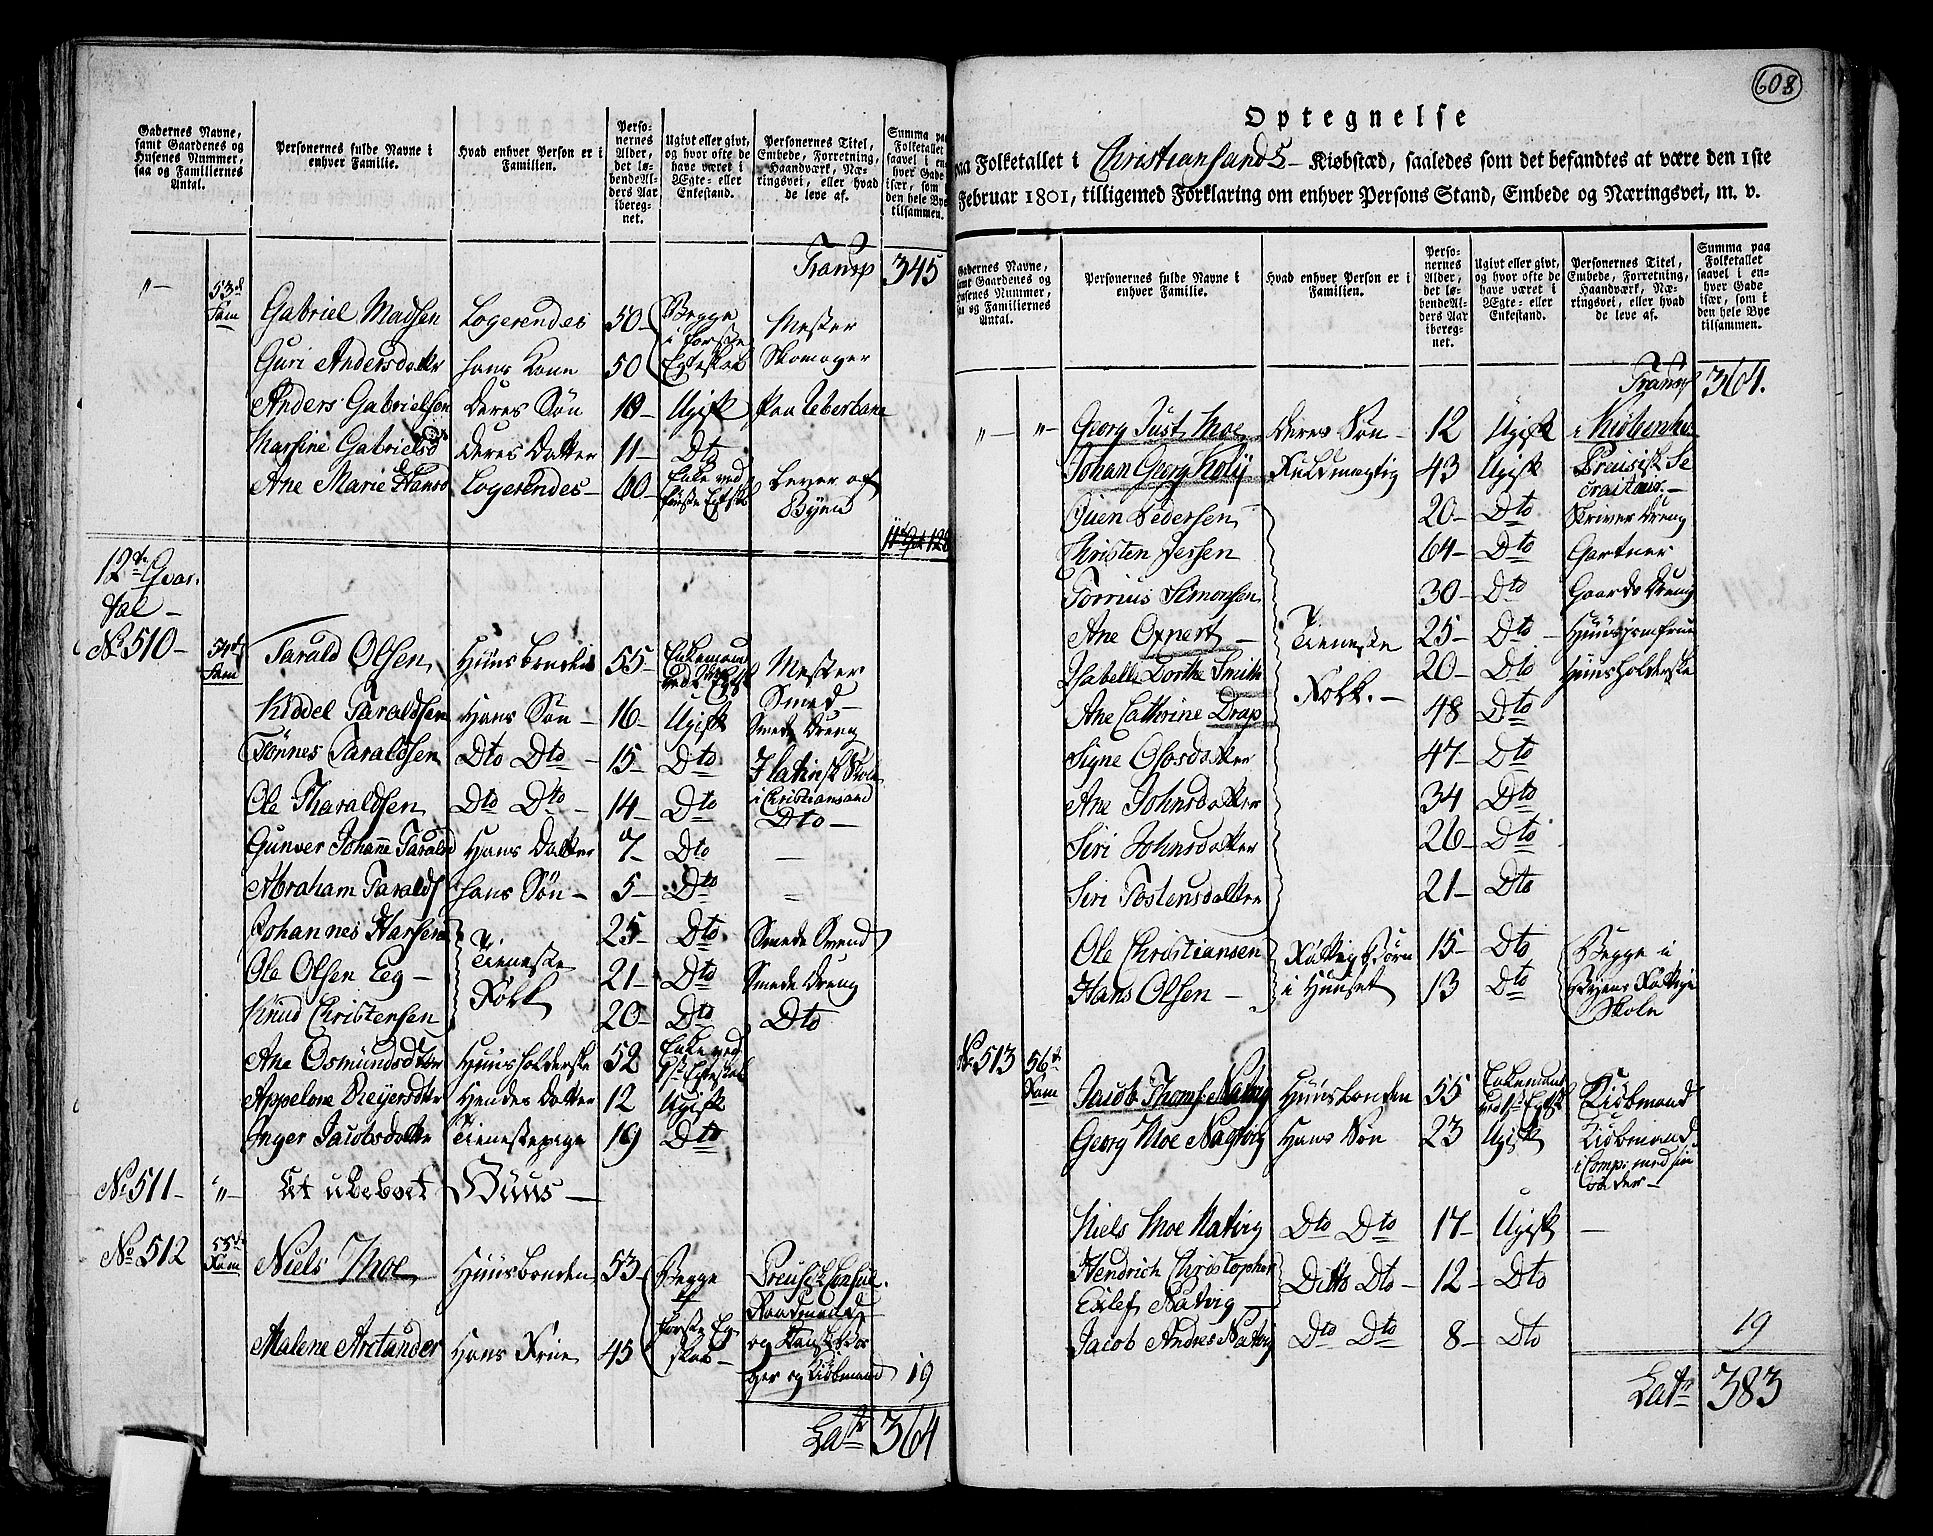 Gadernes Navne, samt Gaardenes og Husenes Nummer, saa og Familiernes Antal.
Personernes fulde Navne i enhver Familie.
Hvad enhver Person er i Familien.
Personernes Alder, det løbende Alders Aar iberegnet.
Ugivt eller givt, og hvor ofte de have været i Ægte- eller Enkestand.
Personernes Titel, Embede, Forretning, Haandværk, Næringsvei, eller hvad de leve af.
Summa paa Folketallet saavel i enhver Gade især, som i den hele Bye tilsammen.
Transp 345
"- 53d Fam Gabriel Madsen Logerendes 50 Begge i første Egteskab Mester Skomager
Guri Andersdatter hans Kone 50
Anders Gabrielsen deres Søn 19 Ugift
Marsine Gabrielsd deres Datter 11 Dto
Ane Marie Hansd Logerendes 60 Enke ved første Egtsk Lever af Byen
12te Qvartal
No 510 54d Fam Tarald Olsen Huusbonden 55 Enkemand Mester Smed
Kiddel Taraldsen Hans Søn 16 Ugift Smede Dreng
Tønnes Taraldsen Dto Dto 15 Dto I latinsk Skole i Christiansand
Ole Tharaldsen Dto Dto 14 Dto Dto
Gunver Johanne Tarald Hans Datter 7 Dto
Abraham Taralds hans Søn 5 Dto
Johannes Hansen Tieneste Folk 25 Dto Smede Svend
Ole Olsen Eeg 21 Dto Smede Dreng
Knud Christensen 20 Dto Dto
Ane Osmundsdtter Huusholderske 52 Enke ved 1st Egteskab
Appelone Reyersdtr Hendes Datter 12 Ugift
Inger Jacobsdatter Tienestepige 19 Dto
No 511 "- Et ubeboet Huus
No 512 55d Fam Niels Moe Huusbonden 53 Begge i første Egskab Preusisk Consul. Raadmand og og Kiøbmand
Malene Arctander Hans Frue 45
19
Lat 364
608
Optegnelse
paa Folketallet i Christiansands Kiøbstæd, saaledes som det befandtes at være den 1ste
Februar 1801, tilligemed Forklaring om enhver Persons Stand, Embede og Næringsvei, m. v.
Gadernes Navne, samt Gaardenes og Husenes Nummer, saa og Familiernes Antal.
Personernes fulde Navne i enhver Familie.
Hvad enhver Person er i Familien.
Personernes Alder, det løbende Alders Aar iberegnet.
Ugivt eller givt, og hvor ofte de have været i Ægte- eller Enkestand.
Personernes Titel, Embede, Forretning, Haandværk, Næringsvei, eller hvad de leve af.
Summa paa Folketallet saavel i enhver Gade især, som i den hele Bye tilsammen.
Transp 364.
"- "- Georg Just Moe deres Søn 12 Ugift i Kiøbenh
Johan Georg Koly Fuldmægtig 43 Ugift Preusisk Secraitair
Quen Pedersen 20 Dto Skriver Dreng
Christen Jessen 64 Dto Gartner
Torrius Simonsen 30 Dto Gaards Dreng
Ane Oxnert Tieneste Folk. 25 Dto Huusjomfrue
Isabelle Dorthe Smith 20 Dto Huusholderske
Ane Cathrine Drap 48 Dto
Signe Olosdatter 47 Dto
Ane Johnsdatter 34 Dto
Siri Johnsdatter 26 Dto
Siri Tostensdatter 21 Dto
Ole Christiansen Fattigbørn i Huuset 15 Dto Begge i Byens Fattige Skole
Hans Olsen 13 Dto
No 513 56d Fam Jacob Thoms Natvig Huusbonden 55 Enkemand ved 1st Egtsk Kiøbmand
Georg Moe Nagtvig Hans Søn 23 Ugift Kiøbmand i Comp: med sin
Niels Moe Natvig Dto Dto 17 Ugift
Hendrich Christopher Eilef Natvig Ditto Dto 12 Dto
Jacob Andres Natvig Dto Dto 8 Dto
19
Lat 383